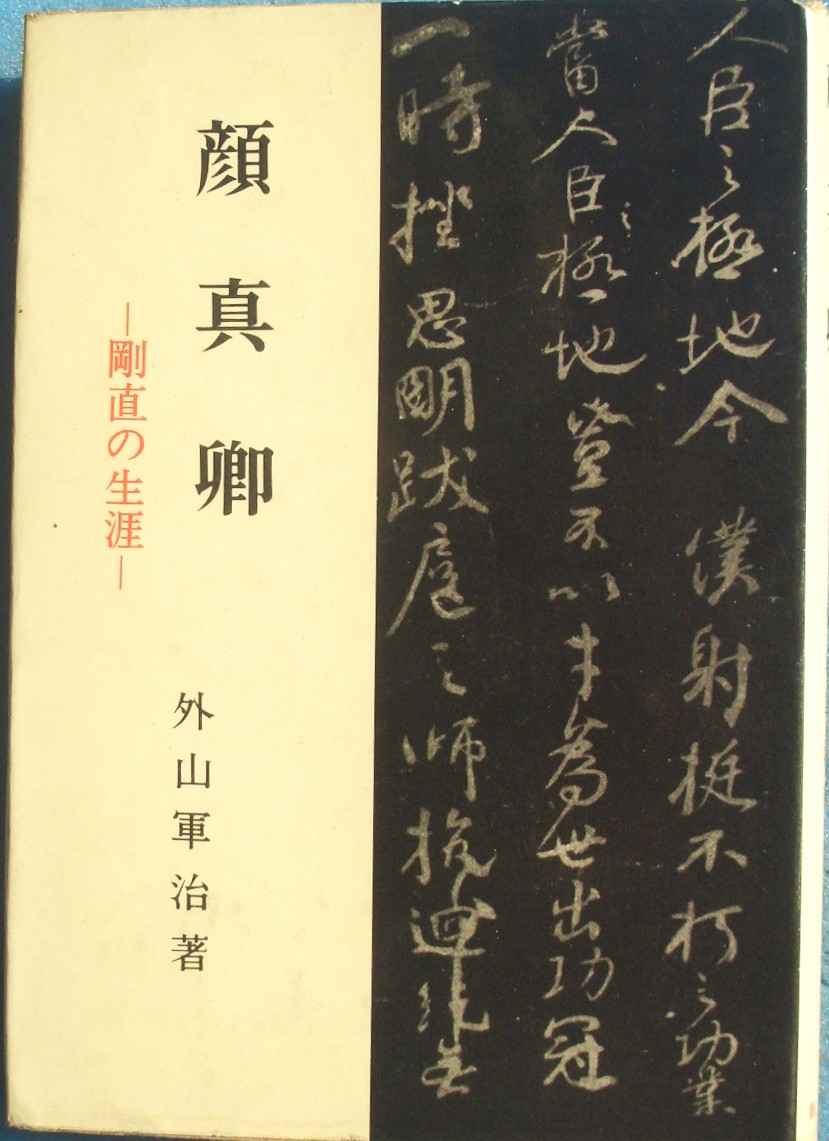 人臣之極地今 僕射挺不朽之功業
當人臣之極地豈不以才為世出功冠
一時挫思明跋扈之師抗迴紇無
顔真卿
―剛直の生涯―
外山軍治著